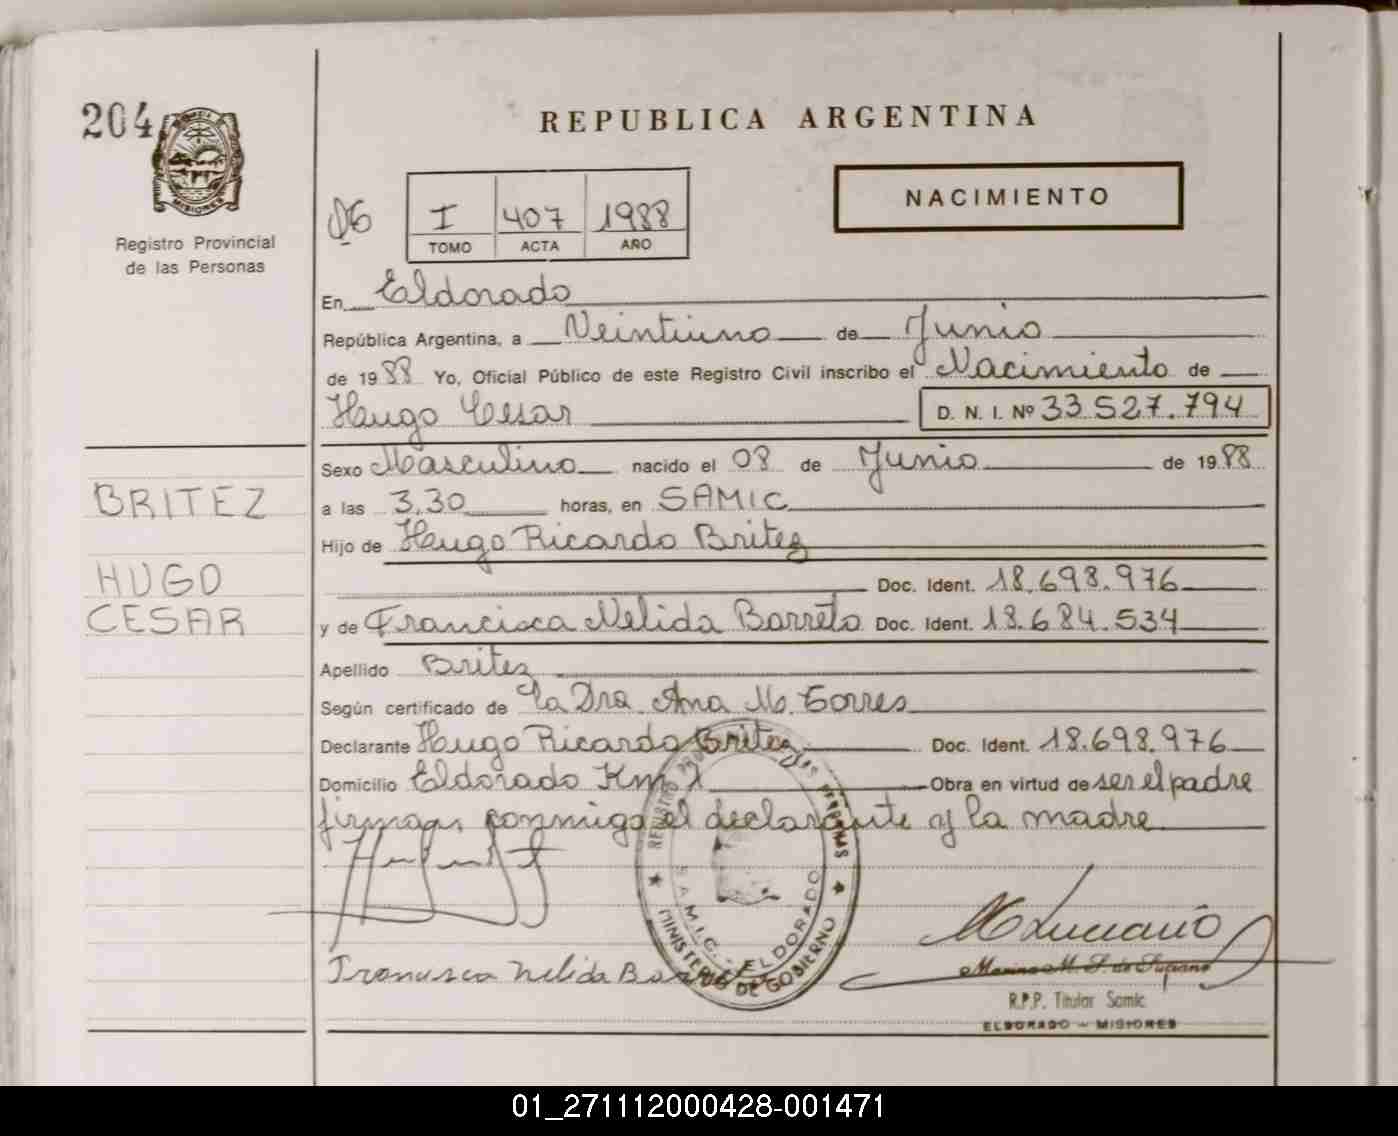 204
MISIONES
Registro Provincial
de las Personas
REPUBLICA ARGENTINA
NACIMIENTO
06 I 407 1988
TOMO ACTA AÑO
En Eldorado
República Argentina, a Veintiuno de Junio
de 1988 Yo, Oficial Público de este Registro Civil inscribo el Nacimiento de
Hugo Cesar D. N. I. Nº 33.527.794
Sexo Masculino nacido el 08 de Junio de 1988
BRITEZ
a las 3,30 horas, en SAMIC
Hijo de Hugo Ricardo Britez
HUGO
Doc. Ident. 18.698.976
CESAR
y de Francisca Nelida Barreto Doc. Ident. 18.684.534
Apellido Britez
Según certificado de la Dra Ana M. Torres
Declarante Hugo Ricardo Britez Doc. Ident. 18.698.976
Domicilio Eldorado Km Obra en virtud de ser el padre
firman conmigo el declarante y la madre
REGISTRO DE LAS PERSONAS
S.A.M.I.C. - ELDORADO
MINISTERIO DE GOBIERNO
M Luciano
Francisca Nelida
R.P.P. Titular Samic
ELDORADO - MISIONES
01_271112000428-001471